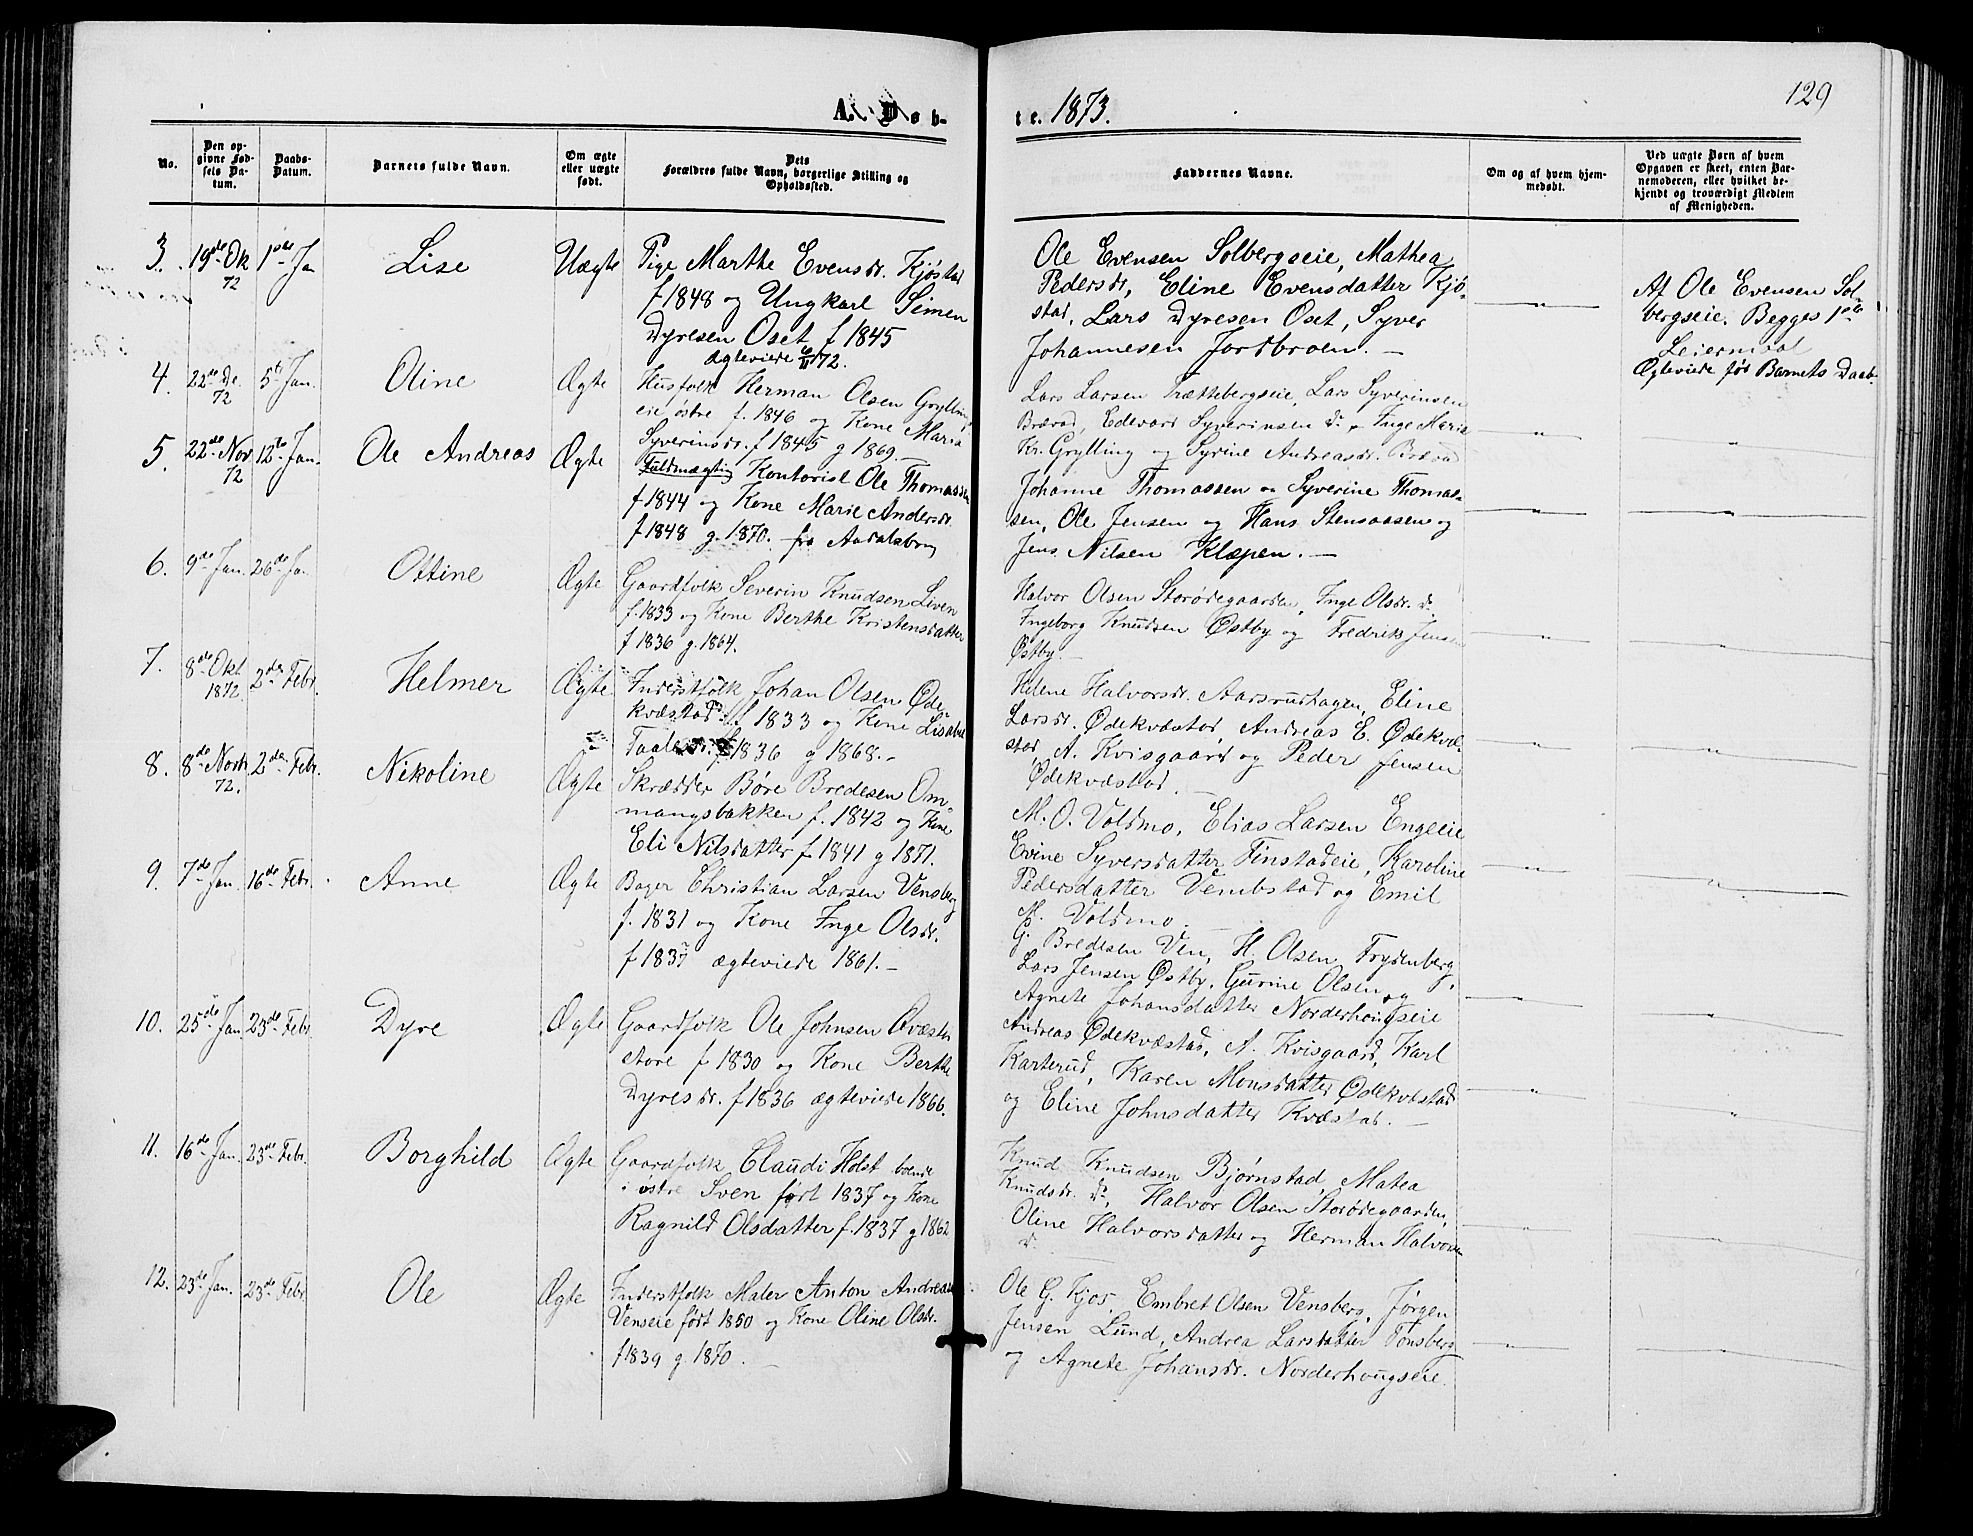 129
A. Døb-
te. 1873.
No.
Den op-
givne Fød-
sels Da-
tum.
Daabs-
Datum.
Barnets fulde Navn.
Om ægte
eller uægte
født.
Dets
Forældres fulde Navn, borgerlige Stilling og
Opholdssted.
Faddernes Navne.
Om og af hvem hjem-
medøbt.
Ved uægte Børn af hvem
Opgaven er skeet, enten Bar-
nemoderen, eller hvilket be-
kjendt og troværdigt Medlem
af Menigheden.
3. 19de Ok 1ste Jan Lise Uægte
72
Pige Marthe Evensdr. Kjøstad
f 1848 og Ungkarl Simen
Dyresen Oset f 1845
ægteviede 72.
Ole Evensen Solbergseie, Mathea
Pedersdr, Eline Evensdatter Kjø-
stad, Lars Dyresen Oset, Syver
Johannesen Jordbroen. —
Af Ole Evensen Sol-
bergseie. Begges 1ste
Leiermaal
Ægteviede før Barnets Daab.
4. 22de De. 5te Jan. Oline Ægte
72
Husfolk Herman Olsen Grylling
eie østre f. 1846 og Kone Maria
Syverinsdr. f 1845 g 1869.
Lars Larsen Trættebergseie, Lars Syverinsen
Brærød, Edevart Syverinsen do, Inge Maria
Kr. Grylling og Syrine Andreasdr. Brærød
5. 22de Nov 12te Jan. Ole Andreas Ægte
72
Fuldmægtig Kontorist Ole Thomassen
f 1844 og Kone Marie Andersdr.
f 1848 g. 1870. fra
Johanne Thomassen og Syverine Thomas-
sen, Ole Jensen og Hans Stensaasen og
Jens Nilsen Klæpen. —
6. 9de Jan. 26de Jan Ottine Ægte
Gaardfolk Severin Knudsen Liven
f. 1833 og Kone Berthe Kristensdatter
f 1836 g. 1864.
Halvor Olsen Storødegaarden, Inge Olsdr. do.
Ingeborg Knudsen Østby og Fredrik Jensen
Østby. —
7. 8de Okt 2den Febr. Helmer Ægte
1872.
Inderstfolk Johan Olsen Øde-
kvæstad f 1833 og Kone Lisabet
f 1836 g 1868. -
Helene Halvorsdr. Aarsrudhagen, Eline
Larsdr. Ødekvæstad, Andreas E. Ødekvæ-
stad, A. Kvisgaard og Peder Jensen
Ødekvæstad. —
8. 8de Novb 2den Febr. Nikoline Ægte
72.
Skrædder Børe Bredesen Om-
mangsbakken f. 1842 og Kone
Eli Nilsdatter f 1841 g 1871.
M. O. Voldmo, Elias Larsen Engeeie
Evine Syversdatter Finstadeie, Karoline
Pedersdatter Vembstad og Emil
M. Voldmo. —
9. 7de Jan. 16de Febr. Anne Ægte
Bager Christian Larsen Vensberg
f. 1831 og Kone Inge Olsdr.
f 1837 ægteviede 1861. —
G. Bredesen Ven, H. Olsen Frydenberg,
Lars Jensen Østby, Gurine Olsen og
Agnete Johansdatter Norderhougseie
10. 25de Jan 23de Febr Dyre Ægte
Gaardfolk Ole Johnsen Qvæstad
store f 1830 og Kone Berthe
Dyresdr. f 1836 ægteviede 1866.
Andreas Ødekvæstad, A. Kvisgaard, Karl
Karterud, Karen Monsdatter Ødekvæstad
og Eline Johnsdatter Kvæstad. —
11. 16de Jan. 23de Febr. Borghild Ægte
Gaardfolk Claudi Holst boende
i østre Sven født 1837 og Kone
Ragnild Olsdatter f. 1837 g 1862
Knud Knudsen Bjørnstad, Matea
Knudsdr. do, Halvor Olsen Storødegaarden,
Oline Halvorsdatter og Herman Halvorsen
do.
12. 23de Jan. 23de Febr Ole Ægte
Inderstfolk Maler Anton Andreas
Venseie født 1850 og Kone Oline Olsdr.
f 1839 g. 1870. —
Ole G. Kjos, Embret Olsen Vensberg, Jørgen
Jensen Lund, Andrea Larsdatter Tonsberg
og Agnete Johansdr. Norderhougseie.